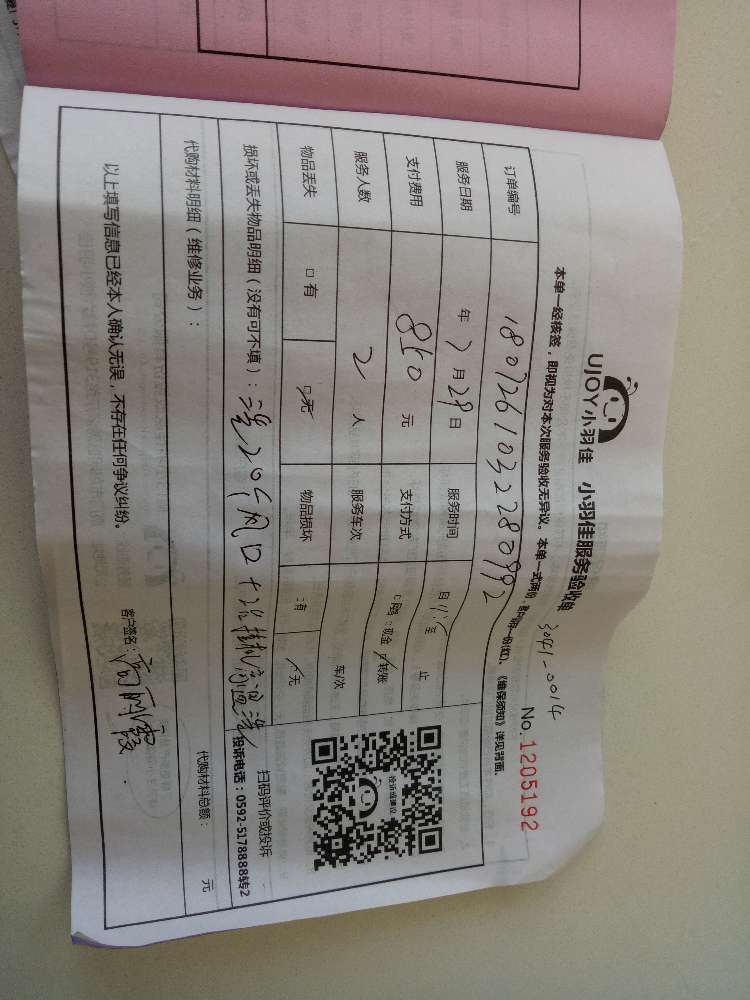 UJOY小羽佳 小羽佳服务验收单
3041-0014
本单一经核签，即视为对本次服务验收无异议。本单一式两份，客户联一份(红)、《维保须知》详见背面。
No.1205192
订单编号 1807261032280992
服务日期 年 7月29日 服务时间 自11:至 止
支付费用 850元 支付方式 现金 转账
服务人数 2人 服务车次 车/次
物品丢失 □有 □无 物品损坏 □有 无
投诉或建议
扫码评价或投诉
投诉电话：0592-5178888转2
损坏或丢失物品明细（没有可不填）：
20个风口+2台挂机高温洗
代购材料明细（维修业务）： 代购材料总额： 元
以上填写信息已经本人确认无误，不存在任何争议纠纷。
客户签名：